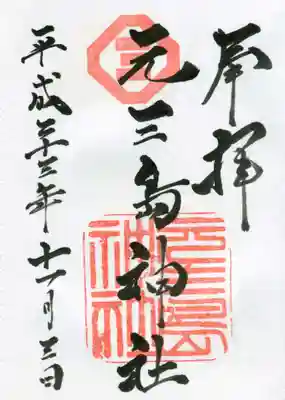 奉拝
元三島神社
平成二十三年十一月三日
三
元三島神社